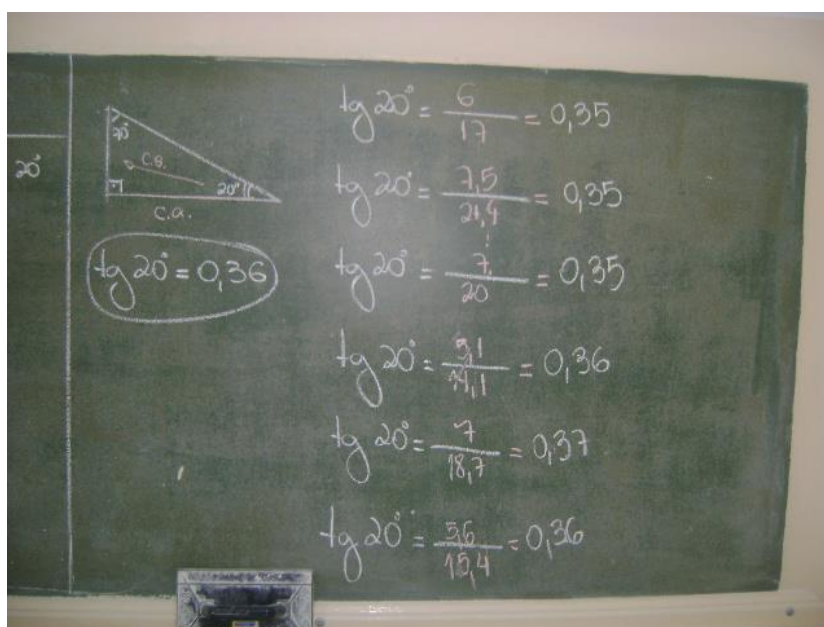 20°
70°
C.O.
20°
C.a.
tg 20° = 0,36
tg 20° = 6/17 = 0,35
tg 20° = 7,5/21,4 = 0,35
tg 20° = 7/20 = 0,35
tg 20° = 5,1/14,1 = 0,36
tg 20° = 7/18,7 = 0,37
tg 20° = 5,6/15,4 = 0,36